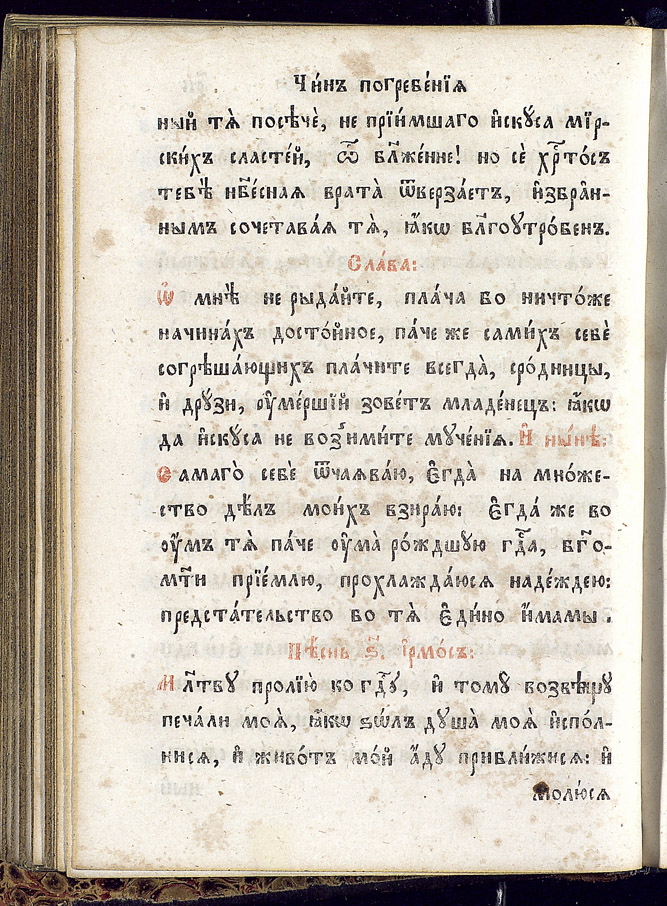 Чи́нъ погребе́нїѧ
ный тѧ̀ посѣчѐ, не прїи́мшаго и҆скꙋ́са мїр-
ски́хъ сласте́й, ѽ бл҃же́нне! но сѐ хрⷭ҇то́съ
тебѣ̀ нбⷭ҇е́снаѧ врата̀ ѿверза́етъ, и҆збра̑н-
нымъ сочетава́ѧ тѧ̀, ꙗ҆́кѡ бл҃гоꙋтро́бенъ.
Сла́ва:
Ѽ мнѣ̀ не рыда́йте, пла́ча бо ничто́же
начина́хъ досто́йное, па́че же сами́хъ себѐ
согрѣша́ющихъ пла́чите всегда̀, сро́дницы,
и҆ дрꙋ́зи, ᲂу҆ме́ршїй зове́тъ младе́нецъ: ꙗ҆́кѡ
да и҆скꙋ́са не воз̾има́те мꙋче́нїѧ. И҆ ны́нѣ:
Самаго̀ себѐ ѿчаѧва́ю, є҆гда̀ на мно́же-
ство дѣ́лъ мои́хъ взира́ю: є҆гда́ же во
ᲂу҆́мъ тѧ̀ па́че ᲂу҆ма̀ ро́ждшꙋю гдⷭ҇а, бг҃о-
мт҃и прїе́млю, прохлажда́юсѧ наде́ждею:
предста́тельство бо тѧ̀ є҆ди́но и҆́мамы.
Пѣ́снь ѕ҃. і҆рмо́съ:
Мл҃твꙋ пролїю̀ ко гдⷭ҇ꙋ, и҆ томꙋ̀ возвѣщꙋ̀
печа́ли моѧ̑, ꙗ҆́кѡ ѕѡ́лъ дꙋша̀ моѧ̀ и҆спо́л-
нисѧ, и҆ живо́тъ мо́й а҆́дꙋ прибли́жисѧ: и҆
молю́сѧ